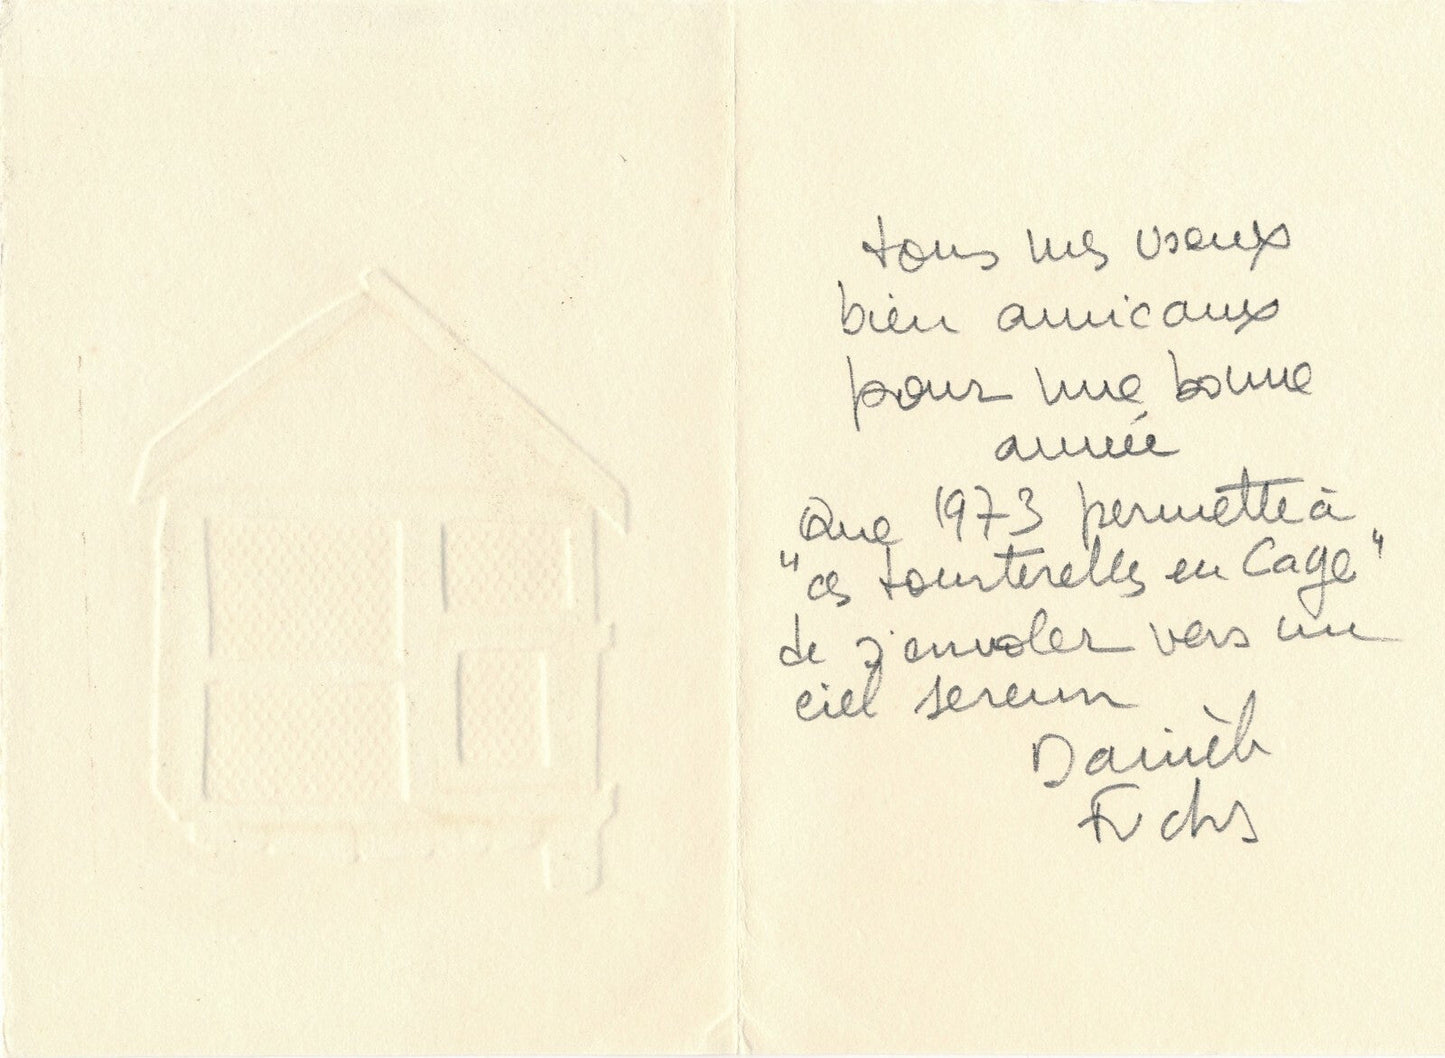 tous mes voeux
bien amicaux
pour une bonne
année
Que 1973 permette à
"ces tourterelles en Cage"
de s'envoler vers un
ciel serein
Danièle
Fuchs